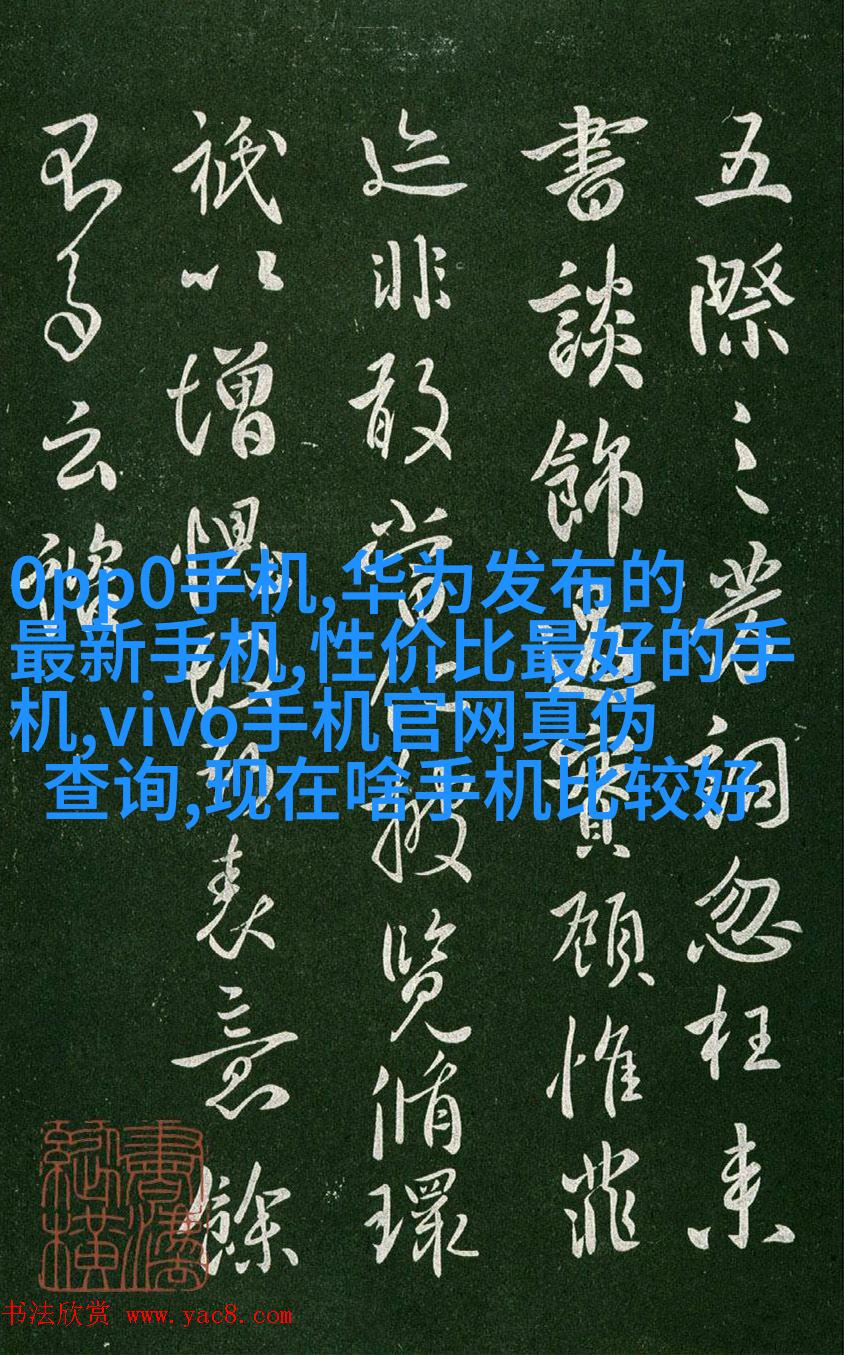 五際之芳詞忽枉来
書談飾實顧惟菲
迹非敢當披覽循環
祇以增愧表意餘
云
0pp0手机,华为发布的
最新手机,性价比最好的手
机,vivo手机官网真伪
查询,现在啥手机比较好
書法欣赏 www.yac8.com